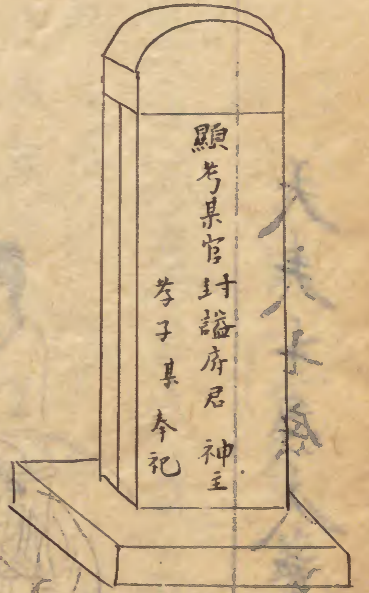 顯考某官封謚府君 神主
孝子某 奉祀